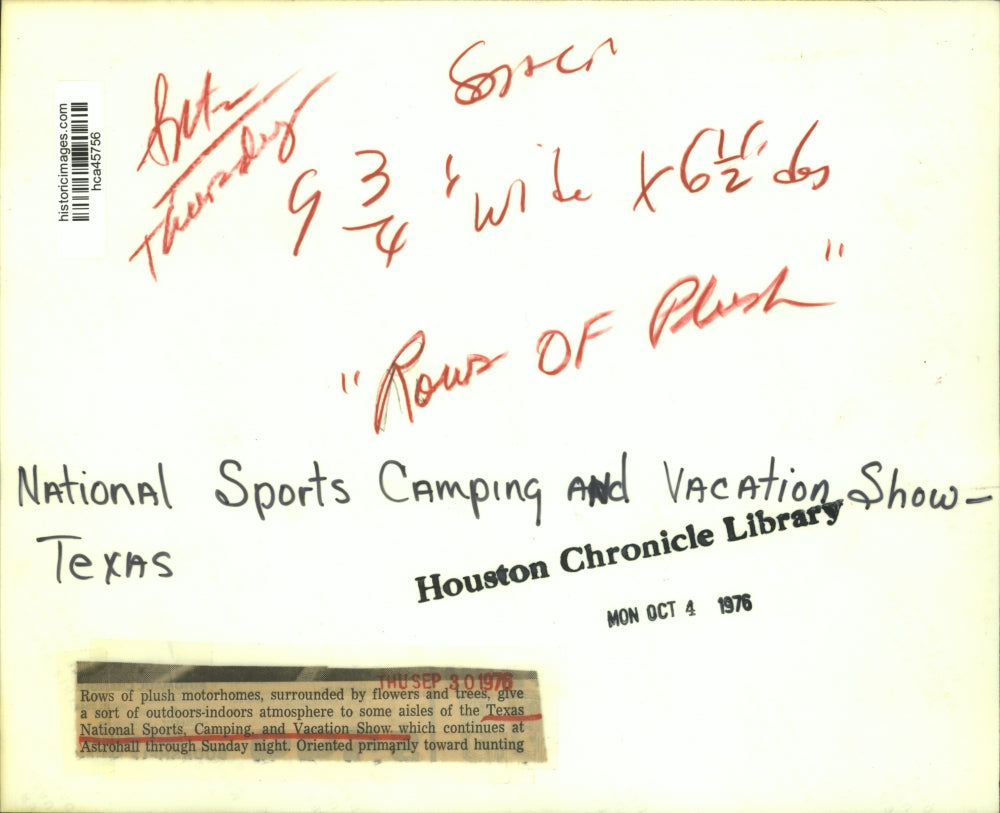 historicimages.com
hca45756
Thursday
9 3/4" wide x 6 1/2"
"Rows OF Plush"
National Sports Camping and Vacation Show-
Texas
Houston Chronicle Library
MON OCT 4 1976
THU SEP 30 1976
Rows of plush motorhomes, surrounded by flowers and trees, give
a sort of outdoors-indoors atmosphere to some aisles of the Texas
National Sports, Camping, and Vacation Show which continues at
Astrohall through Sunday night. Oriented primarily toward hunting